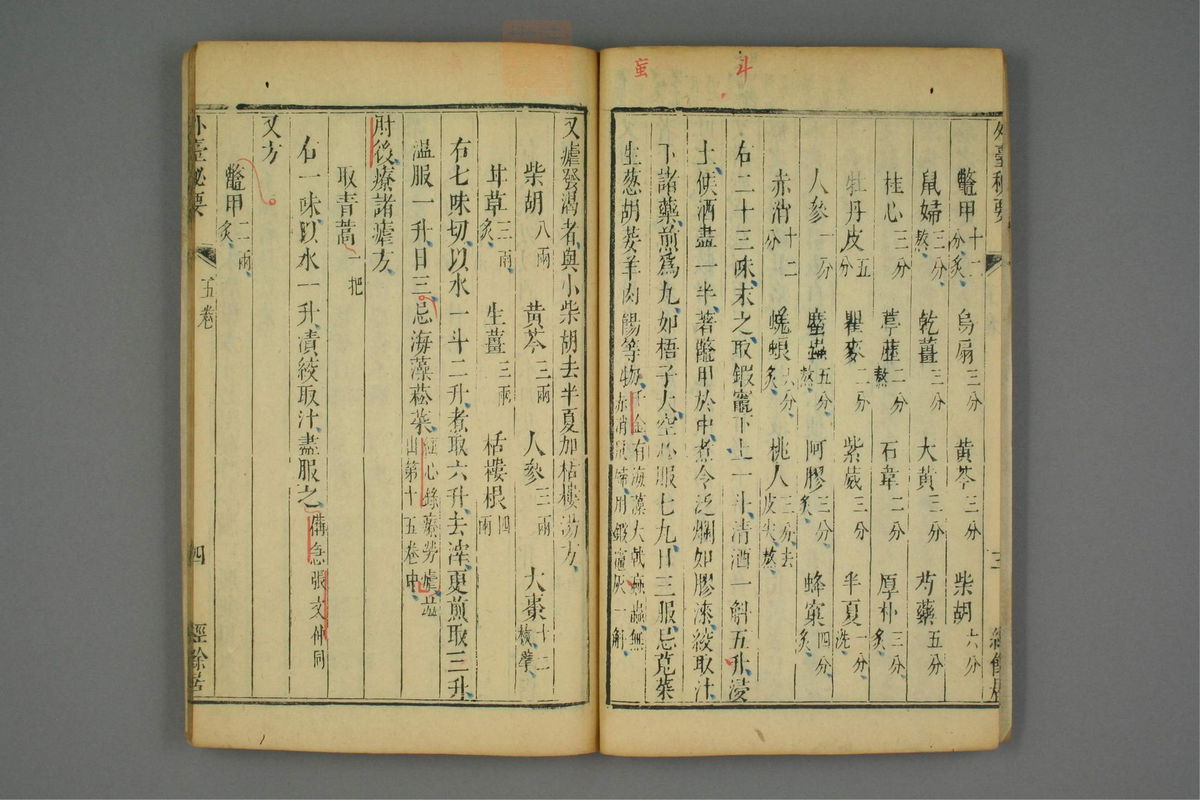 蚉
斗
外臺秘要
鼈甲十二分炙 烏扇三分 黄芩三分 柴胡六分
鼠婦三分熬 乾薑三分 大黄三分 芍藥五分
桂心三分 葶藶二分熬 石韋二分 厚朴三分炙
牡丹皮五分 瞿麥二分 紫葳三分 半夏一分洗
人參一分 䗪蟲五分熬 阿膠三分炙 蜂窠四分炙
赤消十二分 蜣蜋六分炙 桃人三分去皮尖熬
右二十三味末之取鍜竈下土一斗清酒一斛五升浸
土候酒盡一半著鼈甲於中煮令泛爛如膠漆絞取汁
下諸藥煎爲丸如梧子大空心服七丸日三服忌莧菜
生葱胡荽羊肉餳等物千金有海藻大戟䗪蟲無赤消鼠婦用鍜竈灰一斛
三
經餘居
又瘧發渴者與小柴胡去半夏加栝樓湯方
柴胡八兩 黄芩三兩 人參三兩 大棗十二枚擘
甘草三兩炙 生薑三兩 栝樓根四兩
右七味切以水一斗二升煮取六升去滓更煎取三升
温服一升日三忌海藻菘菜經心錄療勞瘧並出第十五卷中
肘後療諸瘧方
取青蒿一把
右一味以水一升漬絞取汁盡服之備急張文仲同
又方
鼈甲二兩炙
外臺秘要
五卷
四
經餘居